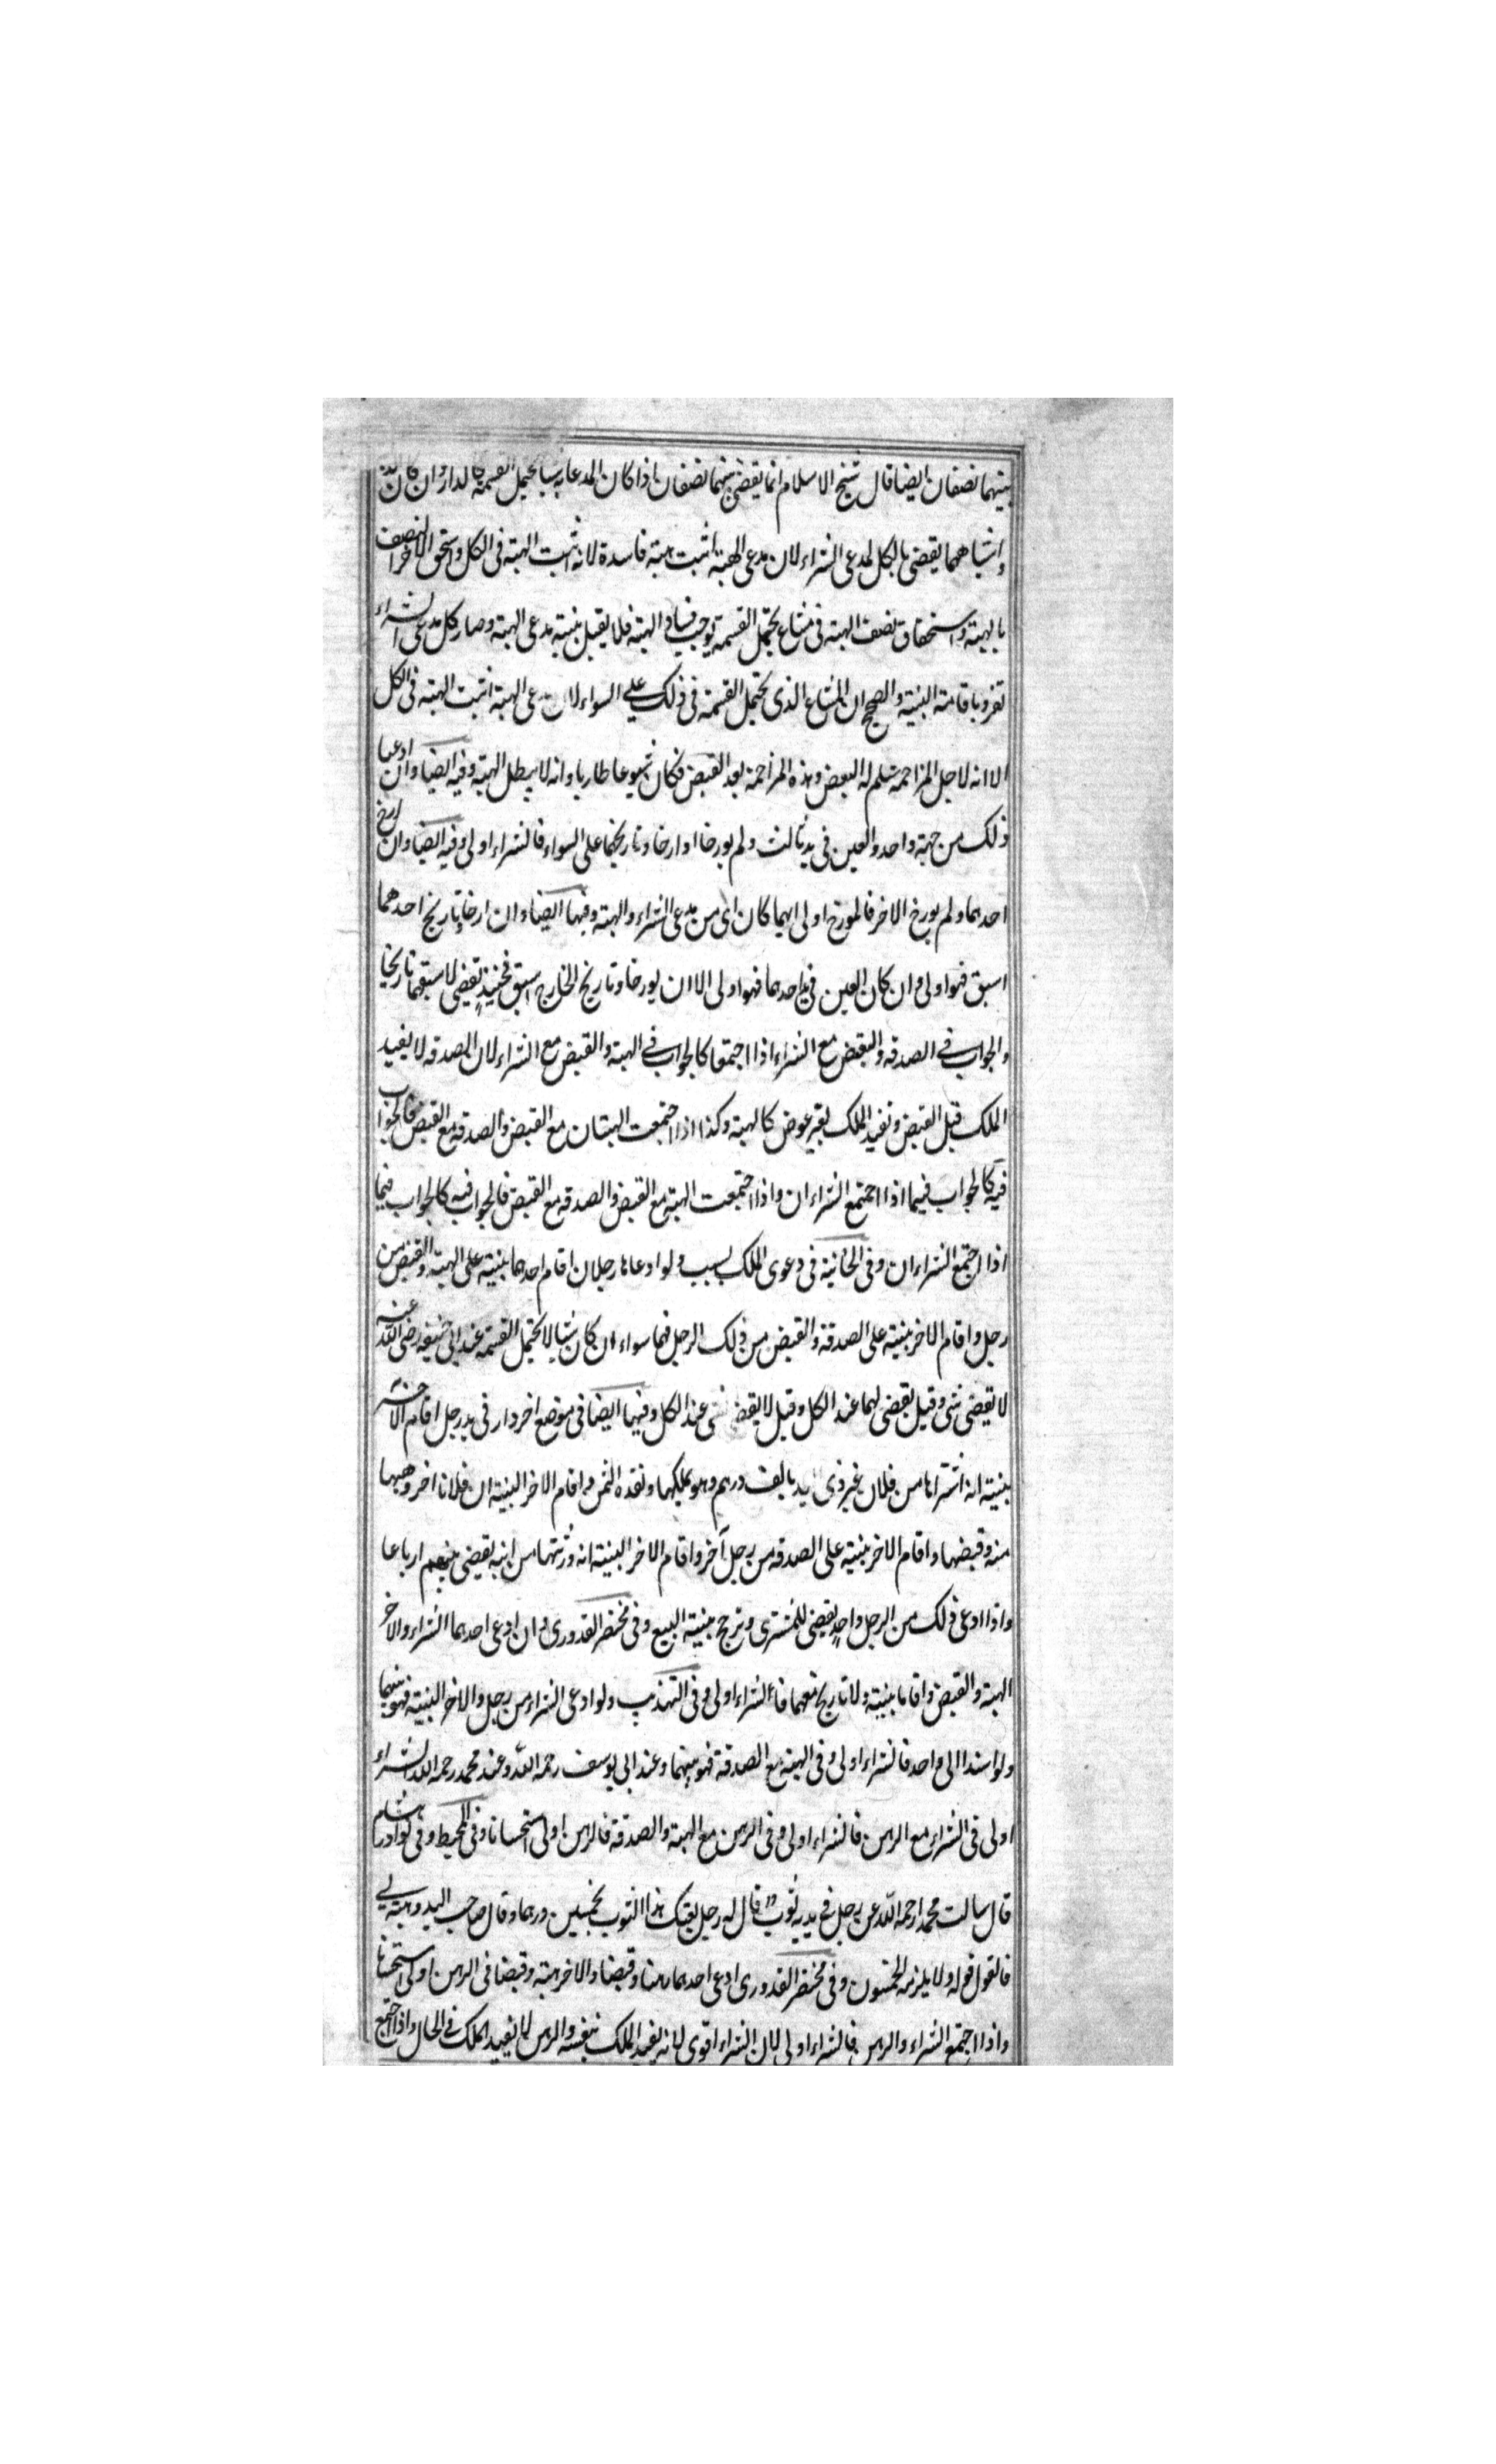 بينهما نصفان ايضا قال شيخ الاسلام انما يقضى بينهما نصفان اذا كان المدعا به شيا يحتمل القسمة كالدار وان كان
واشباههما يقضى بالكل لمدعى الشراء لان مدعى الهبة اثبت هبة فاسدة لانه اثبت الهبة فى الكل واستحق الاخر النصف
بالهبة واستحقاق نصف الهبة فى مشاع يحتمل القسمة يوجب فساد الهبة فلا يقبل بينة مدعى الهبة وصار كل مدعى الشراء
تفرد باقامة البينة والصحيح ان المشاع الذى يحتمل القسمة فى ذلك على السواء لان مدعى الهبة اثبت الهبة فى الكل
الا انه لاجل المزاحمة سلم له البعض وهذه المزاحمة بعد القبض فكان شيوعا طاريا وانه لا يبطل الهبة وفيه ايضا وان ادعيا
ذلك من جهة واحد والعين فى يد ثالث ولم يورخا او ارخا وتاريخهما على السواء فالشراء اولى وفيه ايضا وان ارخ
احدهما ولم يورخ الاخر فالمورخ اولى ايهما كان اى من مدعى الشراء والهبة وفيها ايضا وان ارخا وتاريخ احدهما
اسبق فهو اولى وان كان العين فى يد احدهما فهو اولى الا ان يورخا وتاريخ الخارج اسبق فحينئذ يقضى لاسبقهما تاريخا
والجواب فى الصدقه والقبض مع الشراء اذا اجتمعا كالجواب فى الهبة والقبض مع الشراء لان الصدقه لا يفيد
الملك قبل القبض وتفيد الملك بغير عوض كالهبة وكذا اذا اجتمعت الهبتان مع القبض والصدقه مع القبض فالجواب
فيه كالجواب فيما اذا اجتمع الشراءان واذا اجتمعت الهبة مع القبض والصدقه مع القبض فالجواب فيه كالجواب فيما
اذا اجتمع الشراءان وفى الخانية فى دعوى الملك بسبب ولو ادعاها رجلان اقام احدهما بينة على الهبة والقبض من
رجل واقام الاخر بينة على الصدقة والقبض من ذلك الرجل فهما سواء ان كان شيا لا يحتمل القسمة عند ابى حنيفه رضى الله عنه
لا يقضى بشى وقيل يقضى لهما عند الكل وقيل لا يقضى بشى عند الكل وفيها ايضا فى موضع اخر دار فى يد رجل اقام الاخر
بينة انه اشتراها من فلان غير ذى اليد بالف درهم وهو يملكها ونقده الثمن واقام الاخر البينة ان فلانا اخر وهبها
منه وقبضها واقام الاخر بينة على الصدقه من رجل آخر واقام الاخر البينة انه ورثتها من ابيه يقضى بينهم ارباعا
واذا ادعى ذلك من الرجل واحد يقضى للمشترى وترجح ببينة البيع وفى مختصر القدورى وان ادعى احدهما الشراء والاخر
الهبة والقبض واقاما بينة ولا تاريخ معهما فالشراء اولى وفى التهذيب ولو ادعى الشراء من رجل والاخر البينة فهو بينهما
ولو اسندا الى واحد فالشراء اولى وفى الهبة مع الصدقة فهو بينهما وعند ابى يوسف رحمه الله وعند محمد رحمه الله الشراء
اولى فى الشراء مع الرهن فالشراء اولى وفى الرهن مع الهبة والصدقة فالرهن اولى استحسانا وفى المحيط وفى نوادر هشام
قال سالت محمدا رحمه الله عن رجل فى يديه ثوب قال له رجل بعتك هذا الثوب بخمسين درهما وقال صاحب اليد وهبته لى
فالقول قوله ولا يلزمه الخمسون وفى مختصر القدورى ادعى احدهما رهنا وقبضا والاخر هبة وقبضا فى الرهن اولى استحسانا
واذا اجتمع الشراء والرهن فالشراء اولى لان الشراء اقوى لانه يفيد الملك بنفسه والرهن لا يفيد الملك فى الحال واذا اجتمع